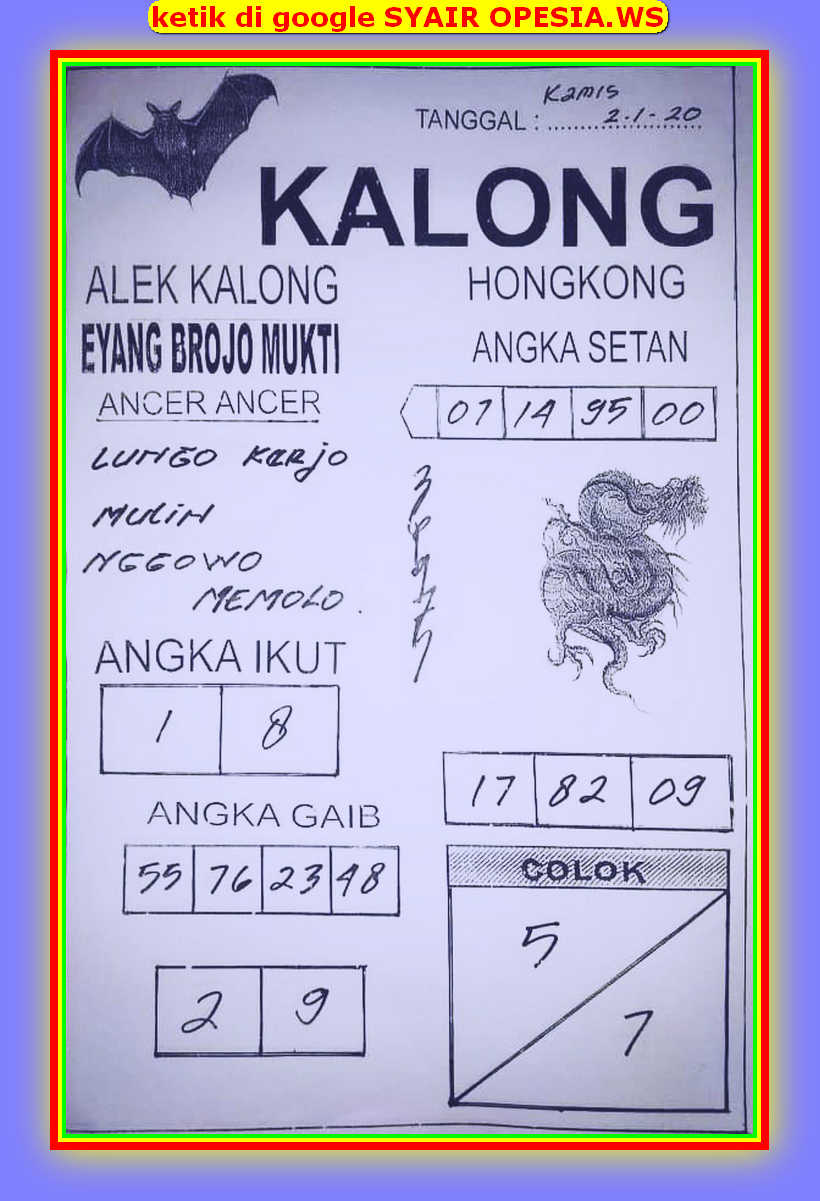 ketik di google SYAIR OPESIA.WS
Kamis
TANGGAL : 2-1-20
KALONG
ALEK KALONG
EYANG BROJO MUKTI
ANCER ANCER
LUNGO KERJO
MULIH
NGGOWO
MEMOLO.
ANGKA IKUT
1 8
ANGKA GAIB
55 76 23 48
2 9
HONGKONG
ANGKA SETAN
07 14 95 00
17 82 09
COLOK
5
7